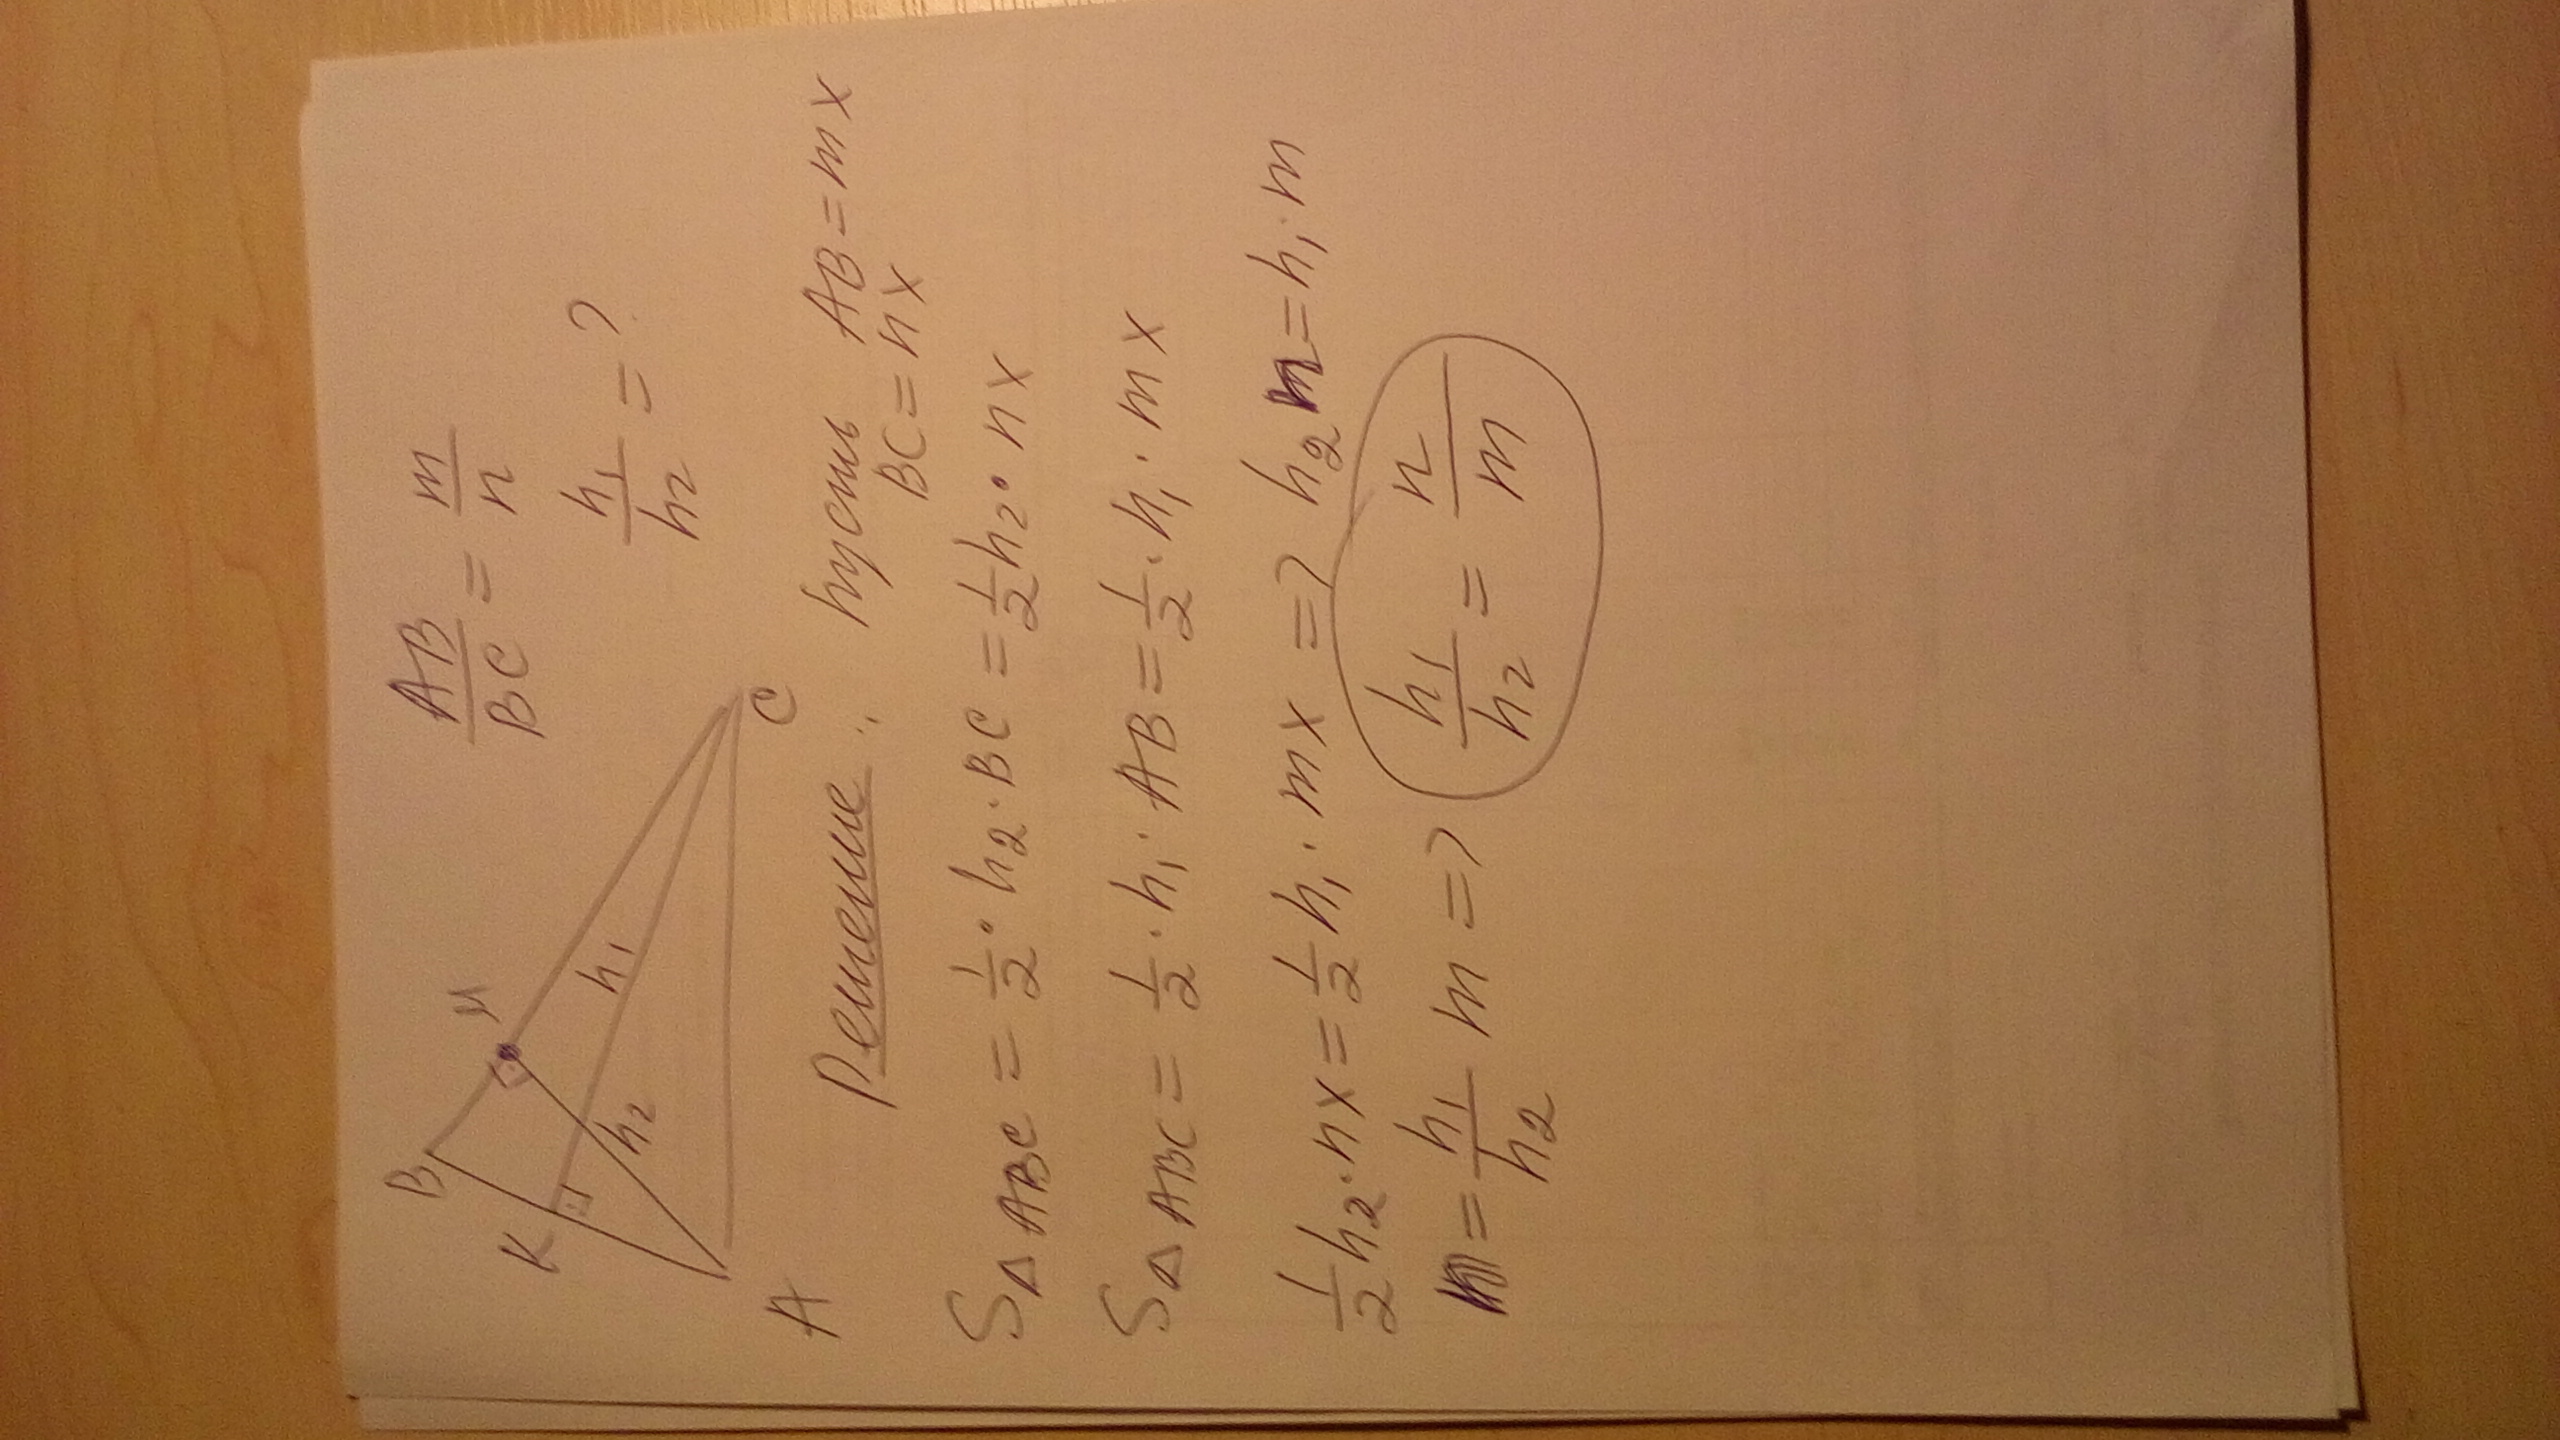 AB/BC = m/n
h₁/h₂ = ?
B
M
K
h₁
h₂
A
C
Решение: пусть AB = mx
BC = nx
S△ABC = 1/2 · h₂ · BC = 1/2 h₂ · nx
S△ABC = 1/2 · h₁ · AB = 1/2 · h₁ · mx
1/2 h₂ · nx = 1/2 h₁ · mx => h₂ n = h₁ · m
n = h₁/h₂ m => h₁/h₂ = n/m